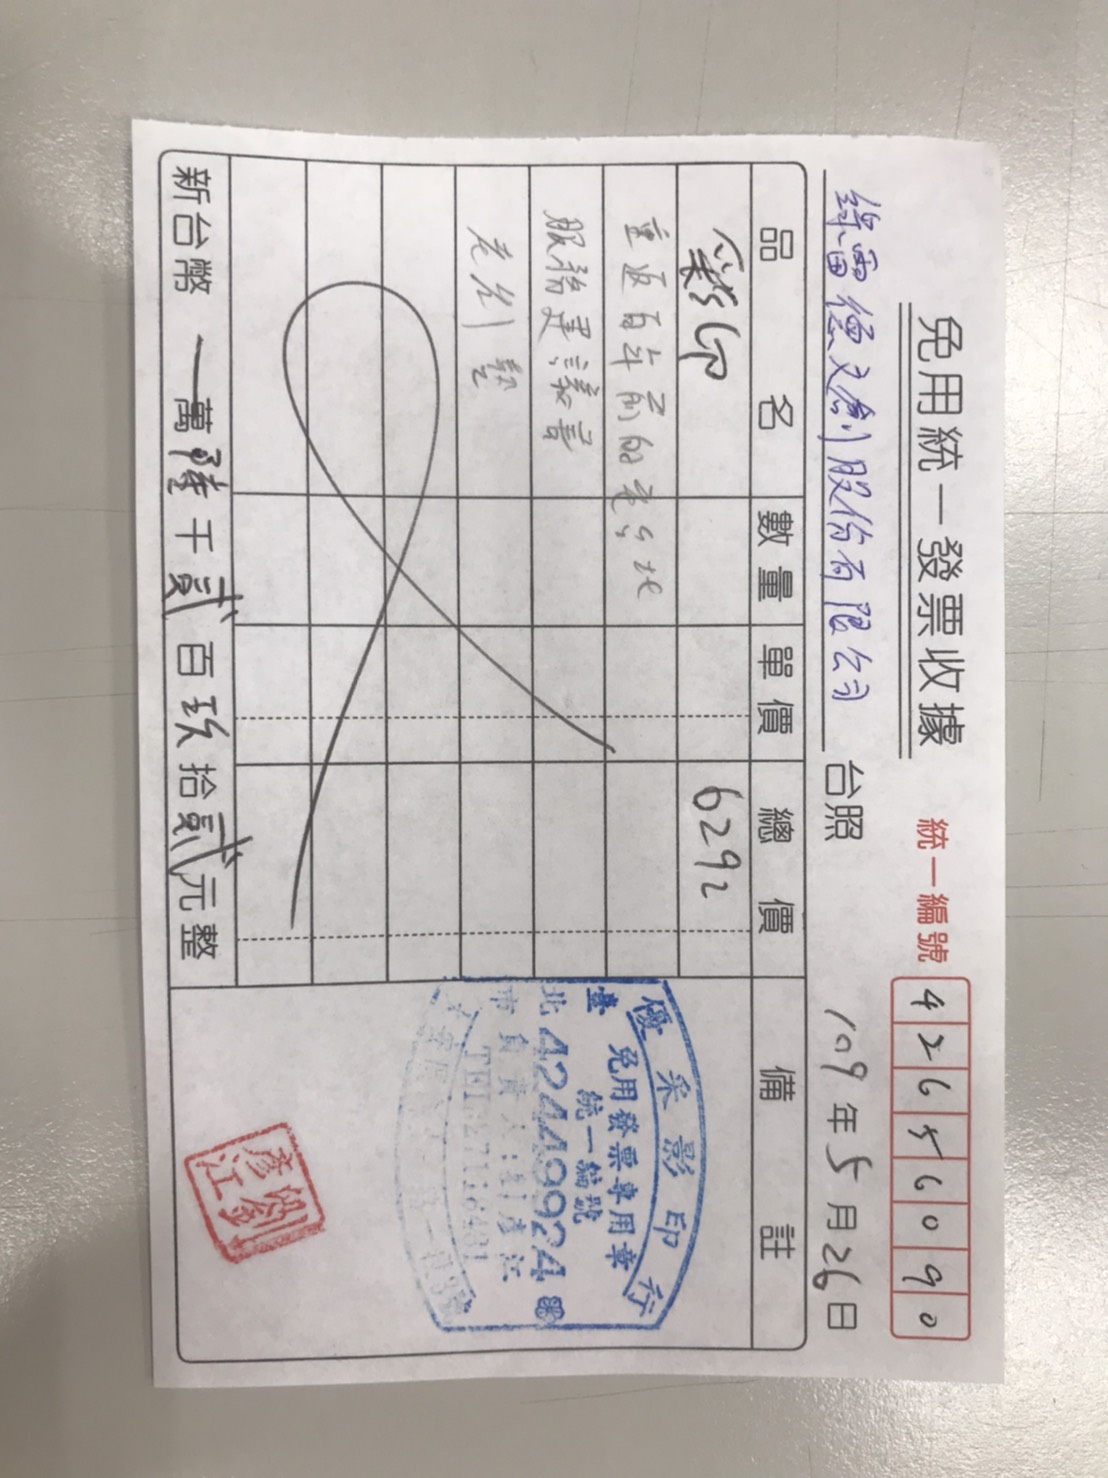 免用統一發票收據
統一編號 42656090
綠雷德文創股份有限公司 台照
109年5月26日
品名 數量 單價 總價 備註
彩印 6292
重返百年前的 台北
服務建議書
新台幣 一萬陸千貳百玖拾貳元整
優采影印行
免用發票專用章
統一編號
42449924
負責人:劉彥江
TEL:27118481
臺北市
劉彥江